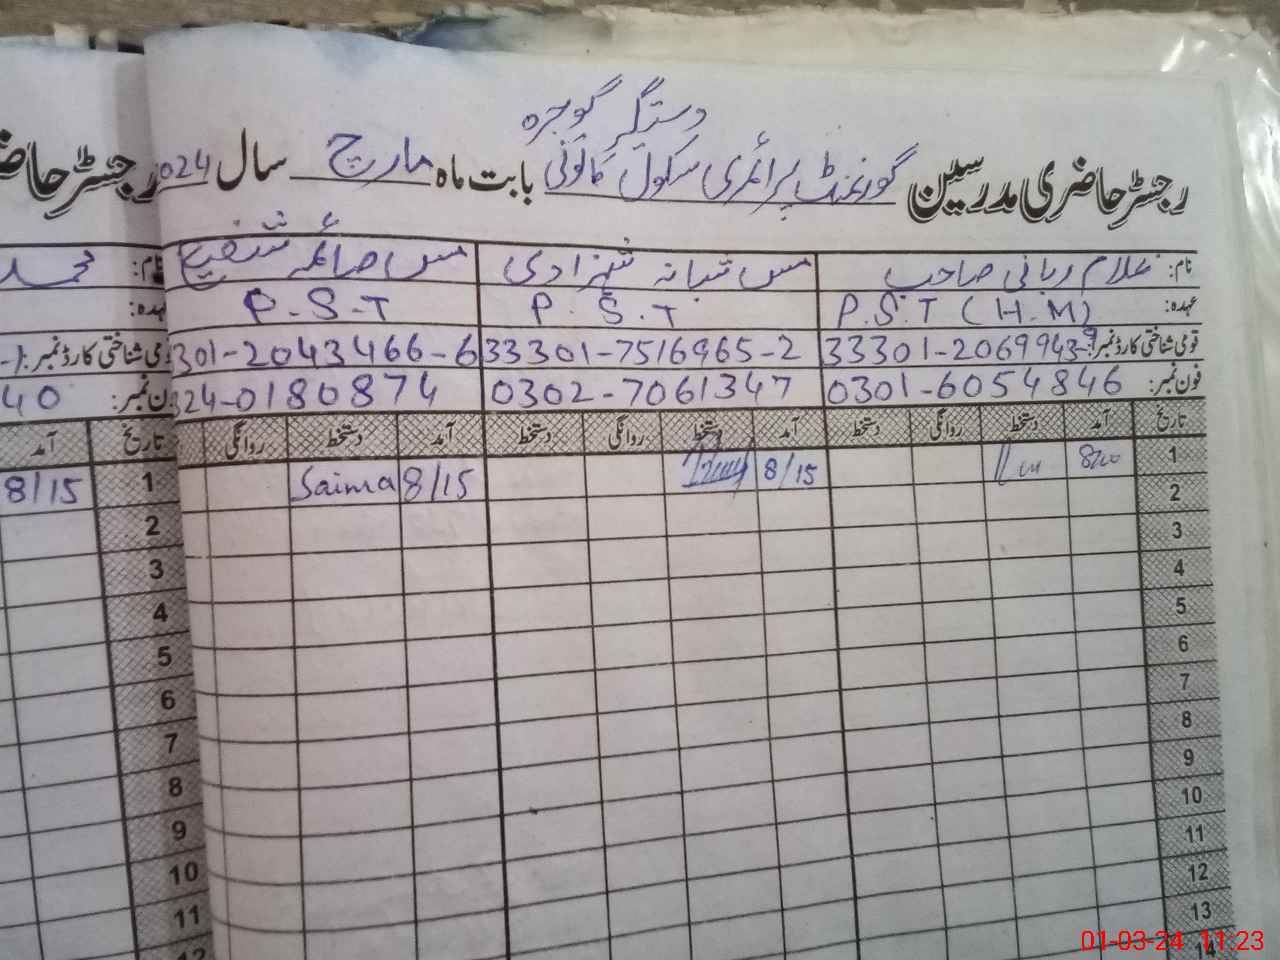 دستگیر گوجرہ
رجسٹر حاضری مدرسین گورنمنٹ پرائمری سکول کالونی بابت ماہ مارچ سال 2024
نام: غلام ربانی صاحب مس شبانہ شہزادی مس صائمہ شفیع
عہدہ: P.S.T (H.M) P.S.T P.S.T
قومی شناختی کارڈ نمبر: 33301-2069943-9 33301-7516965-2 301-2043466-6
فون نمبر: 0301-6054846 0302-7061347 324-0180874
تاریخ آمد دستخط روانگی دستخط آمد دستخط روانگی دستخط آمد دستخط روانگی
1 8/00 8/15 8/15 Saima
2
3
4
5
6
7
8
9
10
11
12
13
14
رجسٹر حاض
نام: محمد
عہدہ:
می شناختی کارڈ نمبر:
ن نمبر: 40
تاریخ آمد
1 8/15
2
3
4
5
6
7
8
9
10
11
12
01-03-24 11:23